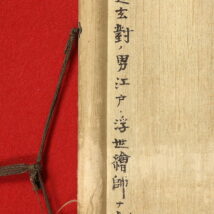 玄對ノ男江戸ノ浮世繪師ナ